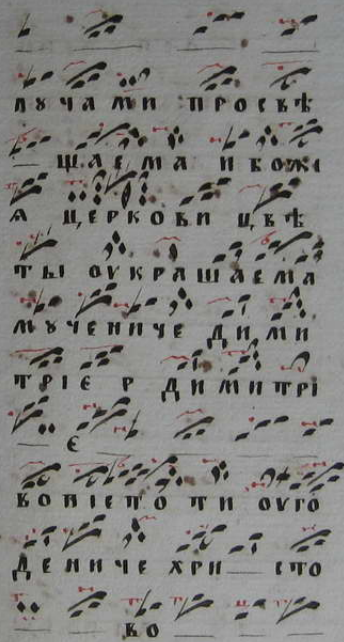 лꙋчами просвѣ
щаема и божи
ѧ церкови цвѣ
ты оукрашаема
мꙋчениче дими
трїє р димитрї
є
вопїєть ти оуго
дениче хри сто
во